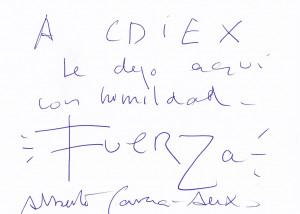 A CDIEX
Le dejo aquí
con humildad -
FUERZa
Alberto García-Alix -